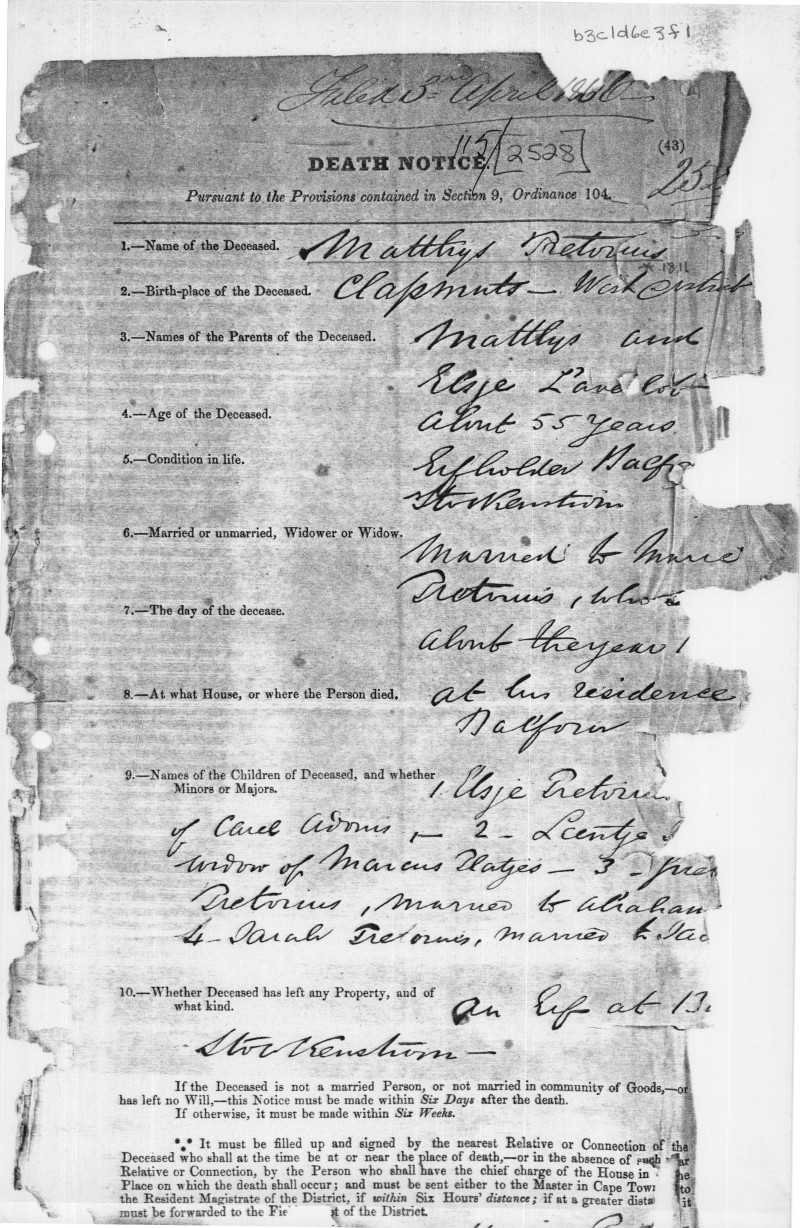 b3c1d6e3f1
Filed 3rd April 1866
115/ [2528] (43)
DEATH NOTICE.
252
Pursuant to the Provisions contained in Section 9, Ordinance 104.
1.—Name of the Deceased. Matthys Pretorius
* 1811
2.—Birth-place of the Deceased. Clapmuts — West district
3.—Names of the Parents of the Deceased. Matthys and
Elsje
4.—Age of the Deceased. About 55 years
5.—Condition in life. Erfholder Balf
Stockenstrom
6.—Married or unmarried, Widower or Widow.
Married to Marie
Pretorius, who
7.—The day of the decease.
about the year 1
8.—At what House, or where the Person died. at his residence
Balfour
9.—Names of the Children of Deceased, and whether
Minors or Majors. 1. Elsje Pretorius
of Carel Adams, — 2 — Leentje
widow of Marcus Platjes — 3 —
Pretorius, married to Abraham
4— Sarah Pretorius, married to
10.—Whether Deceased has left any Property, and of
what kind. an Erf at
Stockenstrom —
If the Deceased is not a married Person, or not married in community of Goods,—or
has left no Will,—this Notice must be made within Six Days after the death.
If otherwise, it must be made within Six Weeks.
*** It must be filled up and signed by the nearest Relative or Connection of the
Deceased who shall at the time be at or near the place of death,—or in the absence of such
Relative or Connection, by the Person who shall have the chief charge of the House in
Place on which the death shall occur; and must be sent either to the Master in Cape Town
the Resident Magistrate of the District, if within Six Hours' distance; if at a greater dista it
must be forwarded to the Fie t of the District.